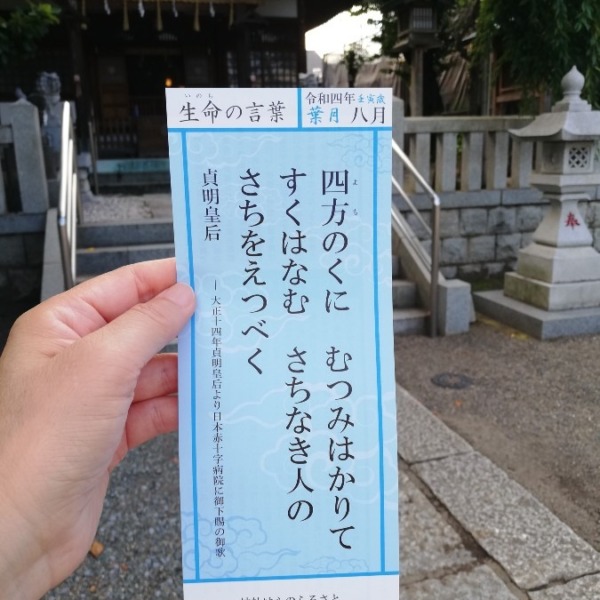 生命の言葉
いのち
令和四年壬寅歳
葉月 八月
四方のくに むつみはかりて
よも
すくはなむ さちなき人の
さちをえつべく
貞明皇后
― 大正十四年貞明皇后より日本赤十字病院に御下賜の御歌
奉